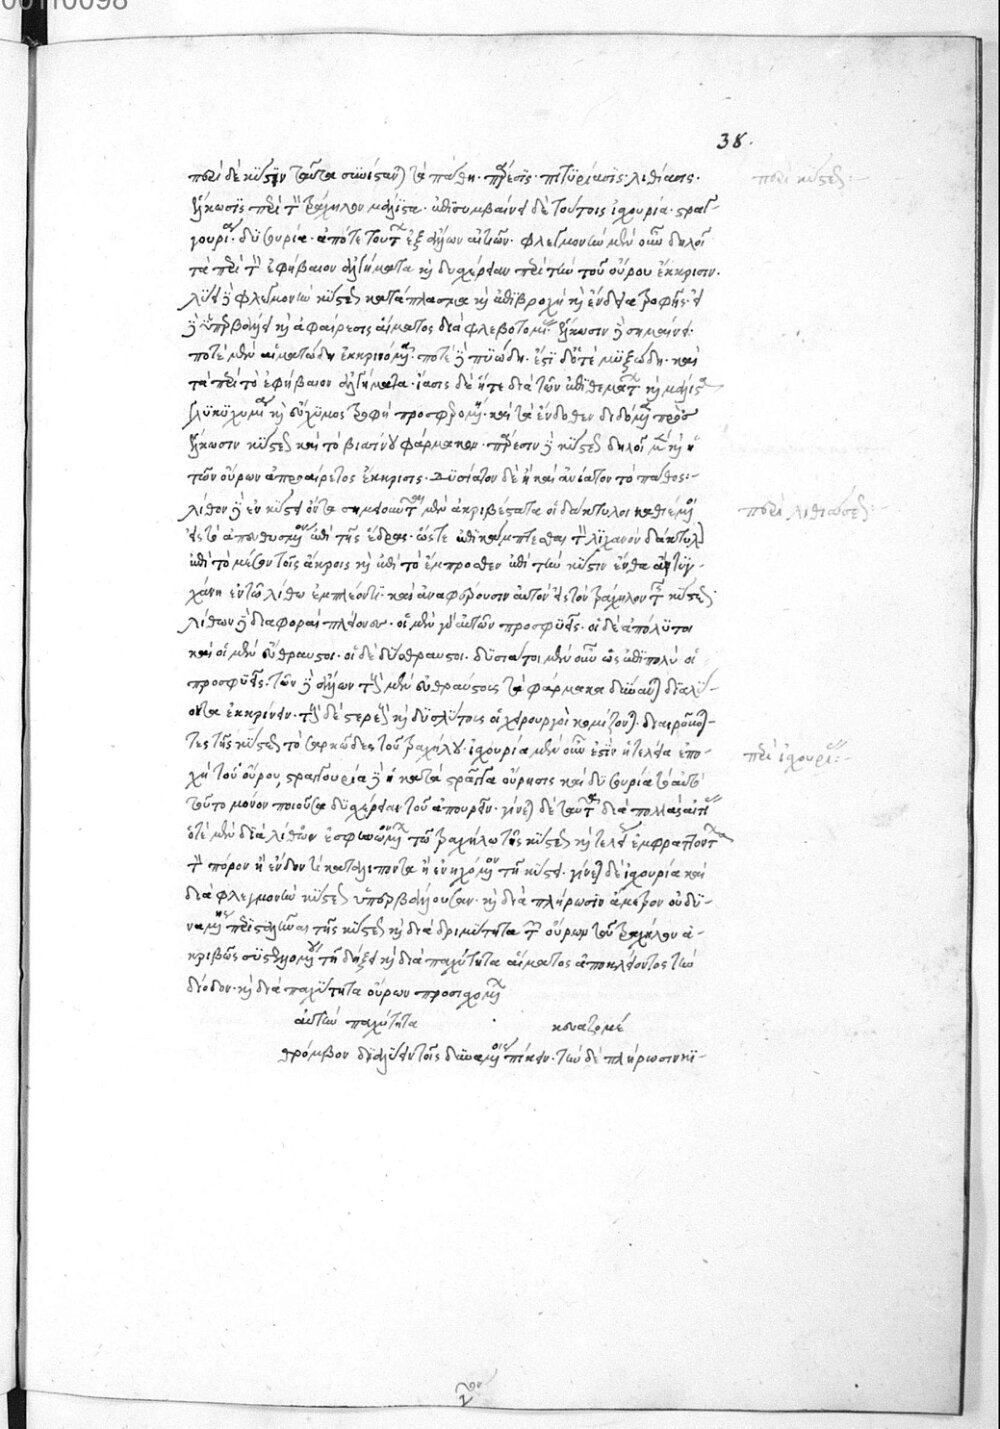 38.
περὶ δὲ κύστιν ταῦτα συνίσταται τὰ πάθη· πάρεσις· πιτυρίασις· λιθίασις·
ἕλκωσις περὶ τὸν τράχηλον μάλιστα· ἐπισυμβαίνει δὲ τούτοις ἰσχουρία· στραγ-
γουρία· δυσουρία· ἀπό τε τούτων ἐξ ἄλλων αἰτιῶν· φλεγμονὴν μὲν οὖν δηλοῖ
τὰ περὶ τὸ ἐφήβαιον ἀλγήματα καὶ δυσχέρεια περὶ τὴν τοῦ οὔρου ἔκκρισιν·
λύει δὲ φλεγμονὴν κύστεως κατάπλασμα καὶ ἐπιβροχὴ καὶ ἔνδεια τροφῆς εἰ
δὲ ὑπερβάλλει καὶ ἀφαίρεσις αἵματος διὰ φλεβοτομίας· ἕλκωσιν δὲ σημαίνει
ποτὲ μὲν αἱματώδη ἐκκρινόμενα· ποτὲ δὲ πυώδη· ἔστι δ' ὅτε μυξώδη· καὶ
τὰ περὶ τὸ ἐφήβαιον ἀλγήματα· ἴασις δὲ ἥ τε διὰ τῶν ἐπιθεμάτων καὶ μάλιστα
γλυκύχυμος καὶ εὔχυμος τροφὴ προσφερομένη· καὶ τὰ ἔνδοθεν διδόμενα πρὸς
ἕλκωσιν κύστεως καὶ τὸ βιασίνου φάρμακον· πάρεσιν δὲ κύστεως δηλοῖ μὲν καὶ ἡ
τῶν οὔρων ἀπροαίρετος ἔκκρισις· δυσίατον δὲ ἢ καὶ ἀνίατον τὸ πάθος:-
λίθον δὲ ἐν κύστει ὄντα σημειοῦνται μὲν ἀκριβέστατα οἱ δάκτυλοι καθιέμενοι
εἰς τὸ ἀπευθυσμένον ἐπὶ τῆς ἕδρας· ὥστε ἐπικάμπτεσθαι τὸν λιχανὸν δάκτυλον
ἐπὶ τὸ μέσον τοῖς ἄκροις καὶ ἐπὶ τὸ ἔμπροσθεν ἐπὶ τὴν κύστιν ἔνθα ἂν τυγ-
χάνῃ ἐν τῷ λίθῳ ἐμπλέοντι· καὶ ἀναφέρουσιν αὐτὸν εἰς τὸν τράχηλον τῆς κύστεως·
λίθων δὲ διαφοραὶ πλείονες· οἱ μὲν γὰρ αὐτῶν προσφυεῖς· οἱ δὲ ἀπόλυτοι
καὶ οἱ μὲν εὔθραυστοι· οἱ δὲ δύσθραυστοι· δυσίατοι μὲν οὖν ὡς ἐπιπολὺ οἱ
προσφυεῖς· τῶν δὲ ἄλλων τοὺς μὲν εὐθραύστους τὰ φάρμακα δύναται διαλύ-
οντα ἐκκρίνειν· τοὺς δὲ στερεοὺς καὶ δυσλύτους οἱ χειρουργοὶ κομίζονται· διαιροῦν-
τες τῆς κύστεως τὸ σαρκῶδες τοῦ τραχήλου· ἰσχουρία μὲν οὖν ἐστιν ἡ τελεία ἐπο-
χὴ τοῦ οὔρου, στραγγουρία δὲ ἡ κατὰ στράγγα οὔρησις καὶ δυσουρία τὸ αὐτὸ
τοῦτο μόνον ποιοῦσα δυσχέρειαν τοῦ ἀπουρεῖν· γίνεται δὲ ταῦτα διὰ πολλὰς αἰτίας
ὁτὲ μὲν διὰ λίθον ἐσφηνωμένον τῷ τραχήλῳ τῆς κύστεως καὶ τελείως ἐμφράττοντα
τὸν πόρον ἢ ἔνδον τι καταλείποντα ἢ ἐνηχόμενον τῇ κύστει· γίνεται δὲ ἰσχουρία καὶ
διὰ φλεγμονὴν κύστεως ὑπερβάλλουσαν· καὶ διὰ πλήρωσιν ἄμετρον οὐ δυ-
ναμένης περισταλῆναι τῆς κύστεως καὶ διὰ δριμύτητα τῶν οὔρων τοῦ τραχήλου ἀ-
κριβῶς συστελλομένου τῇ δήξει καὶ διὰ παχύτητα αἵματος ἀποκλείοντος τὴν
δίοδον· καὶ διὰ παχύτητα οὔρων προσισχομένων
αὐτὴν παχύτητα
θρόμβον διαλύειν τοῖς δυναμένοις πίνειν· τὴν δὲ πλήρωσιν κύ-
περὶ κύστεως:-
περὶ λιθιάσεως:-
περὶ ἰσχουρίας:-